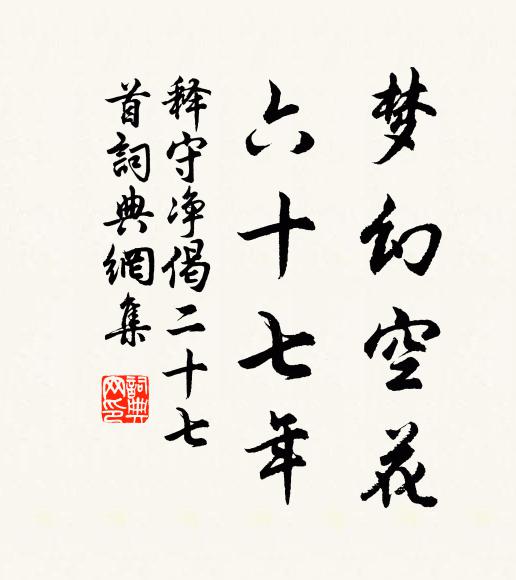 梦幻空花
六十七年
释守净偈二十七
首詞典網集
詞典网印